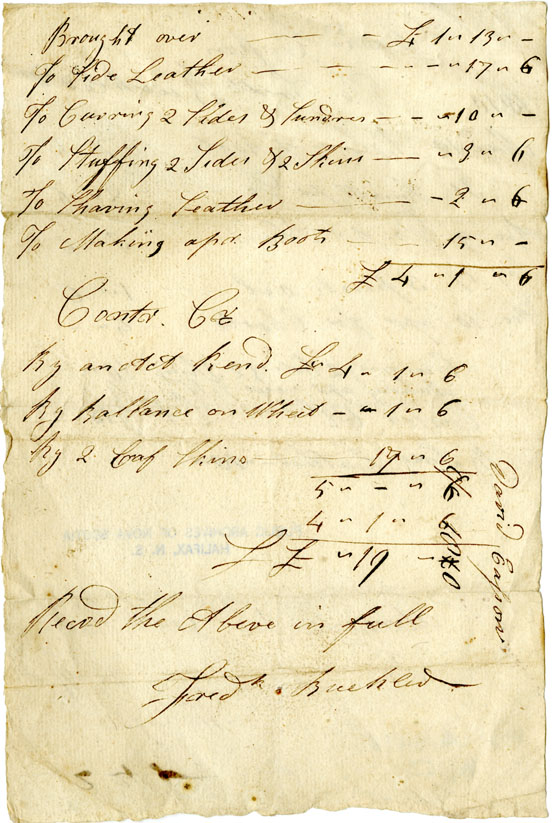 Brought over — — - £ 1 " 13 " -
To Side Leather - - - - - " 17 " 6
To Curring 2 Sides & Sundres - - " 10 " -
To Stuffing 2 Sides & 2 Skins — " 3 " 6
To Shaving Leather — — - 2 " 6
To Making a pr Boots — 15 " -
£ 4 " 1 " 6
Contr. Cr
By an Rend. £ 4 " 1 " 6
By Ballance on Wheat - " 1 " 6
By 2 Caf Skins — 17 " 6
5 " - " 6
4 " 1 " 6
£ " 19 " 0
Recvd the Above in full
Fredk. Buckler
David Easson
HALIFAX, N. S.